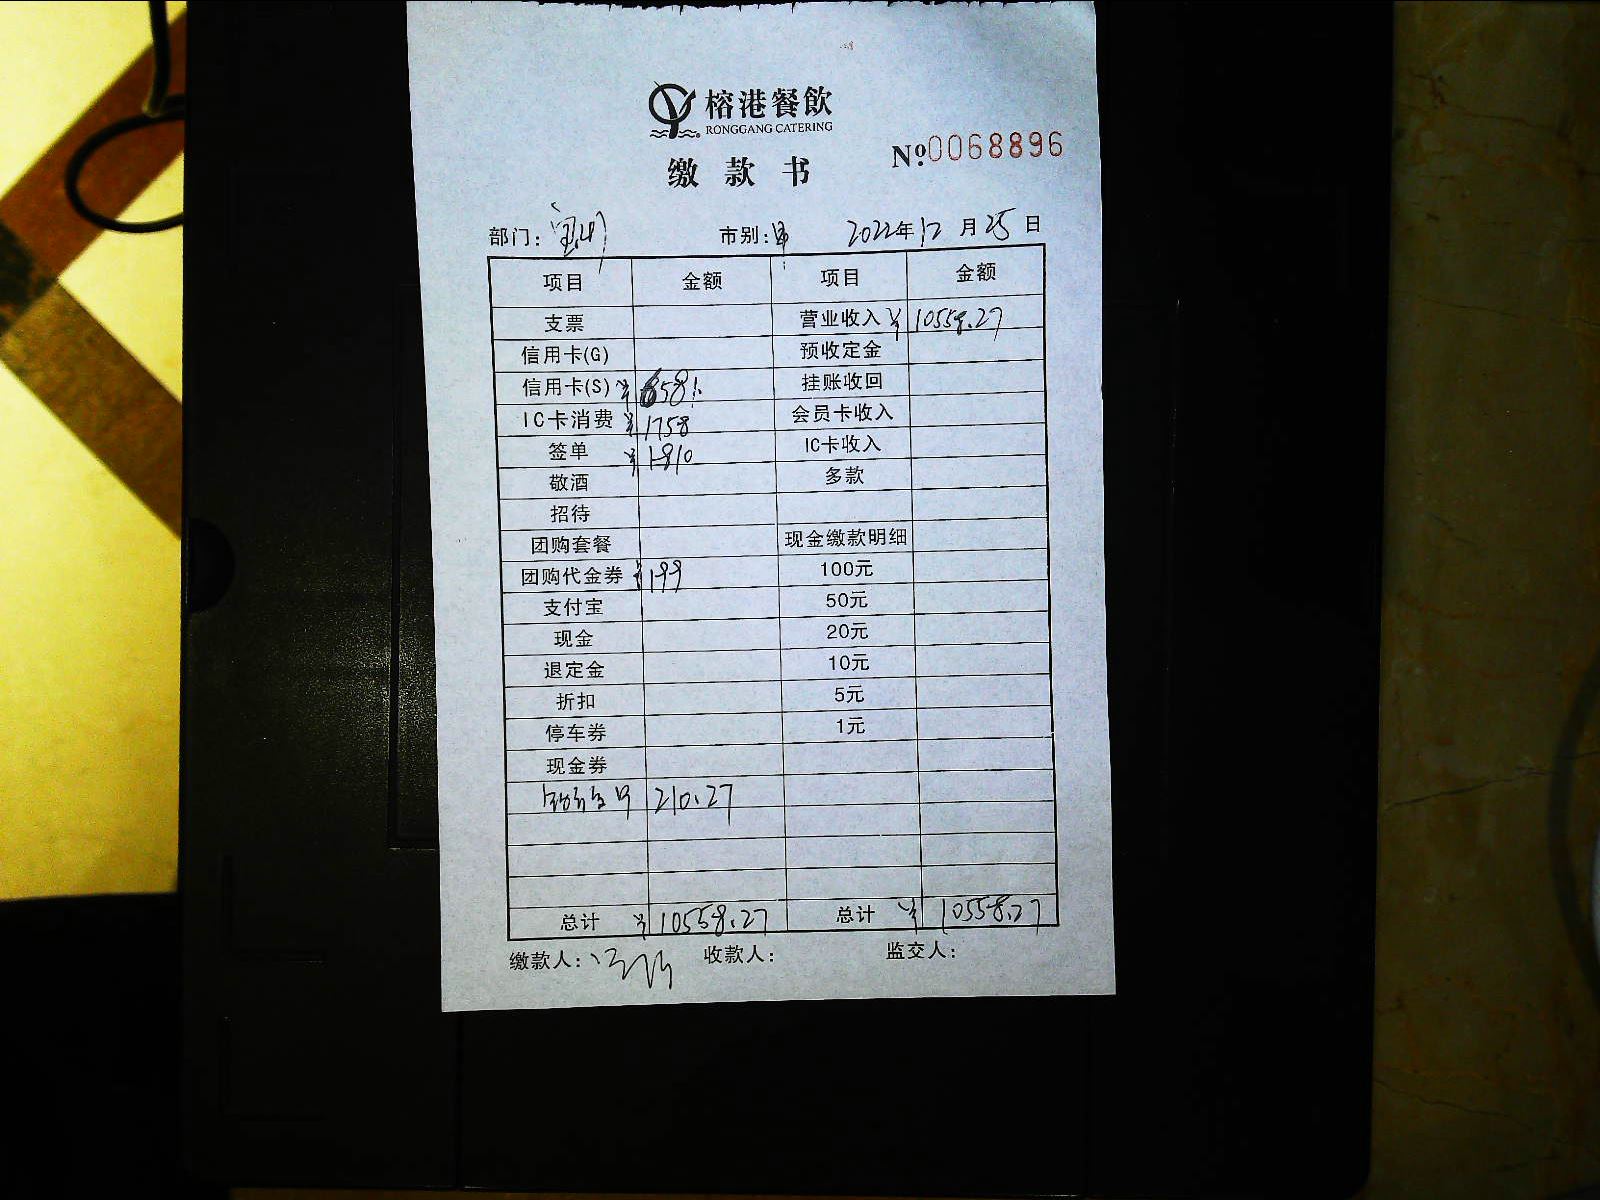 榕港餐飲
RONGGANG CATERING
缴款书
№0068896
部门: 市别: 2022年12月25日
项目 金额 项目 金额
支票 营业收入 ¥10558.27
信用卡(G) 预收定金
信用卡(S) ¥6581 挂账收回
IC卡消费 ¥1758 会员卡收入
签单 ¥1810 IC卡收入
敬酒 多款
招待
团购套餐 现金缴款明细
团购代金券 ¥199 100元
支付宝 50元
现金 20元
退定金 10元
折扣 5元
停车券 1元
现金券
210.27
总计 ¥10558.27 总计 ¥10558.27
缴款人: 收款人: 监交人: